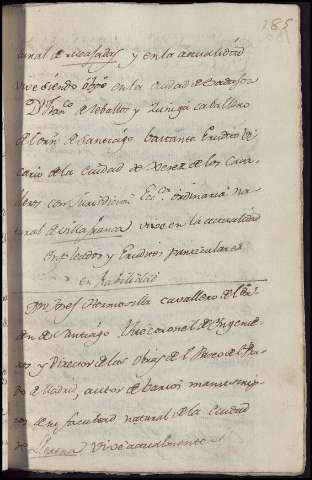 185
tural de Measadas y en la anualidad
vive siendo obpo en la ciudad de Badajoz
Dn Franco de Zeballos y Zuñiga caballero
del orn de Santiago bastante Erudito Vi-
cario de la ciudad de Xerez de los Cava-
lleros con Jurisdicion Ecca ordinaria na-
tural de Villafranca vive en la actualidad
Empleados y Eruditos particulares
en habilidad
Dn Josef Hermosilla cavallero del or-
den de Santiago thte coronel de Ingenie-
ros y Director de las obras del Paseo del Pra-
do de Madrid, autor de barios manuscrip-
tos de su facultad natural de la Ciudad
de Llerena vive actualmente